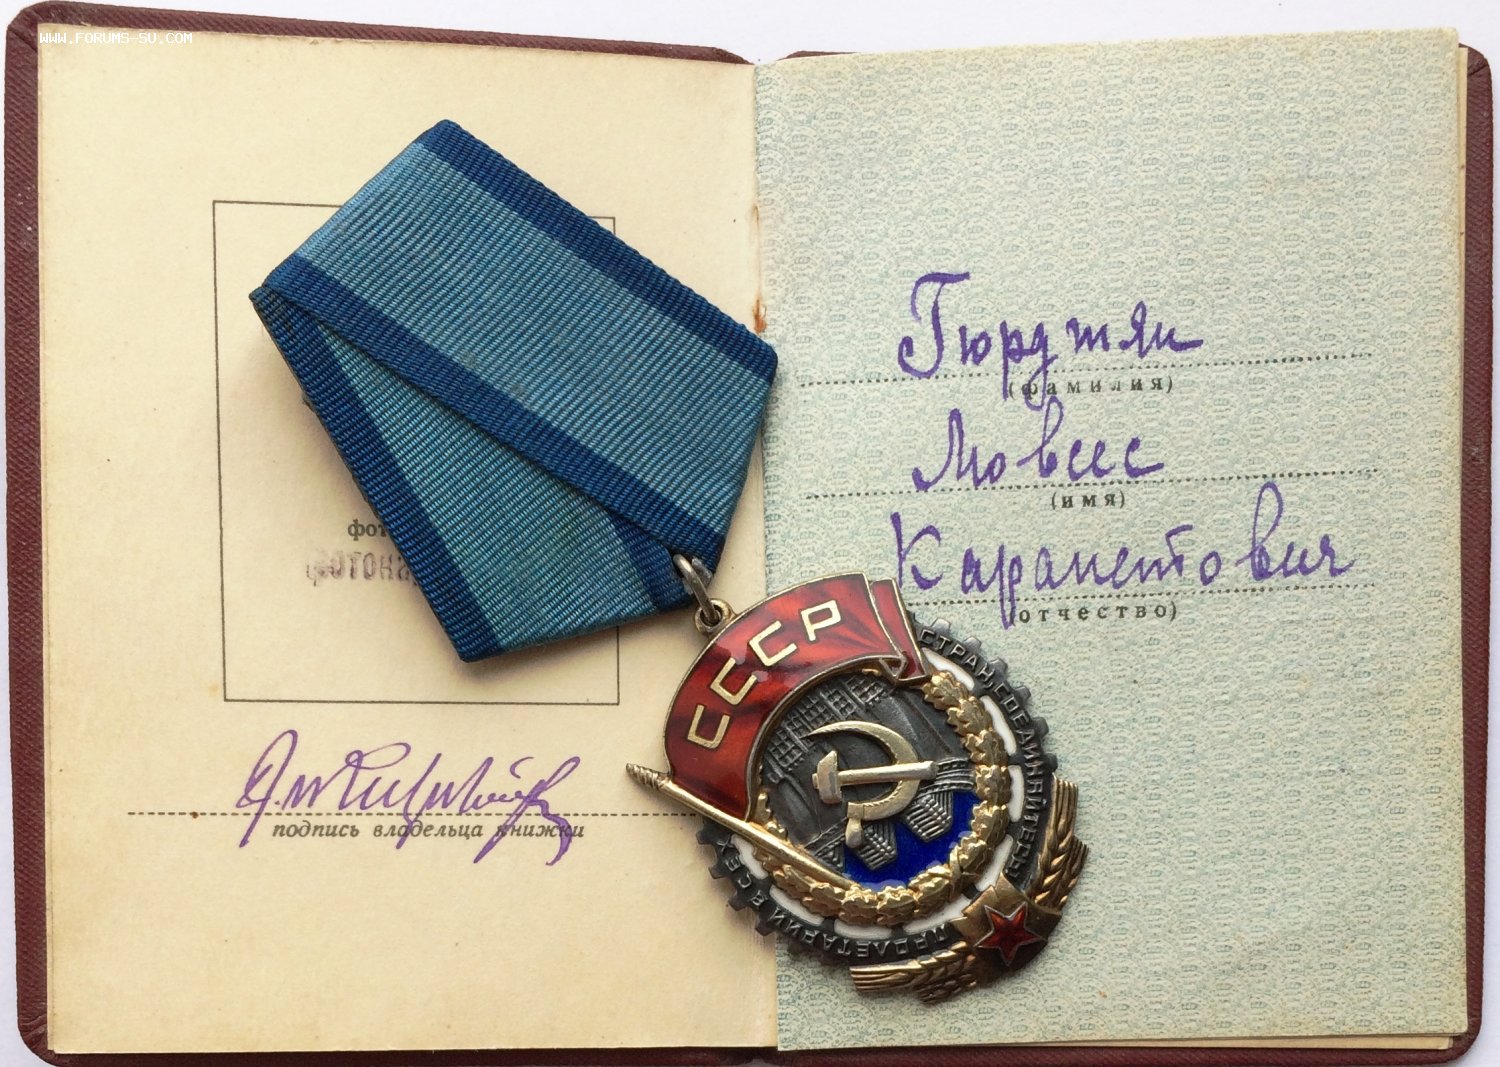 WWW.FORUMS-SU.COM
фот
подпись владельца книжки
Гюрджян
(фамилия)
Мовсес
(имя)
Карапетович
(отчество)
СССР
ПРОЛЕТАРИИ ВСЕХ СТРАН, СОЕДИНЯЙТЕСЬ